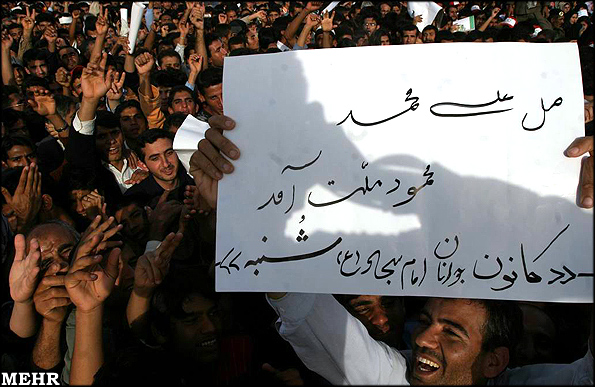 صل علی محمد
محمود ملّت آمد
کانون جوانان امام سجاد (ع) شُنبه
MEHR